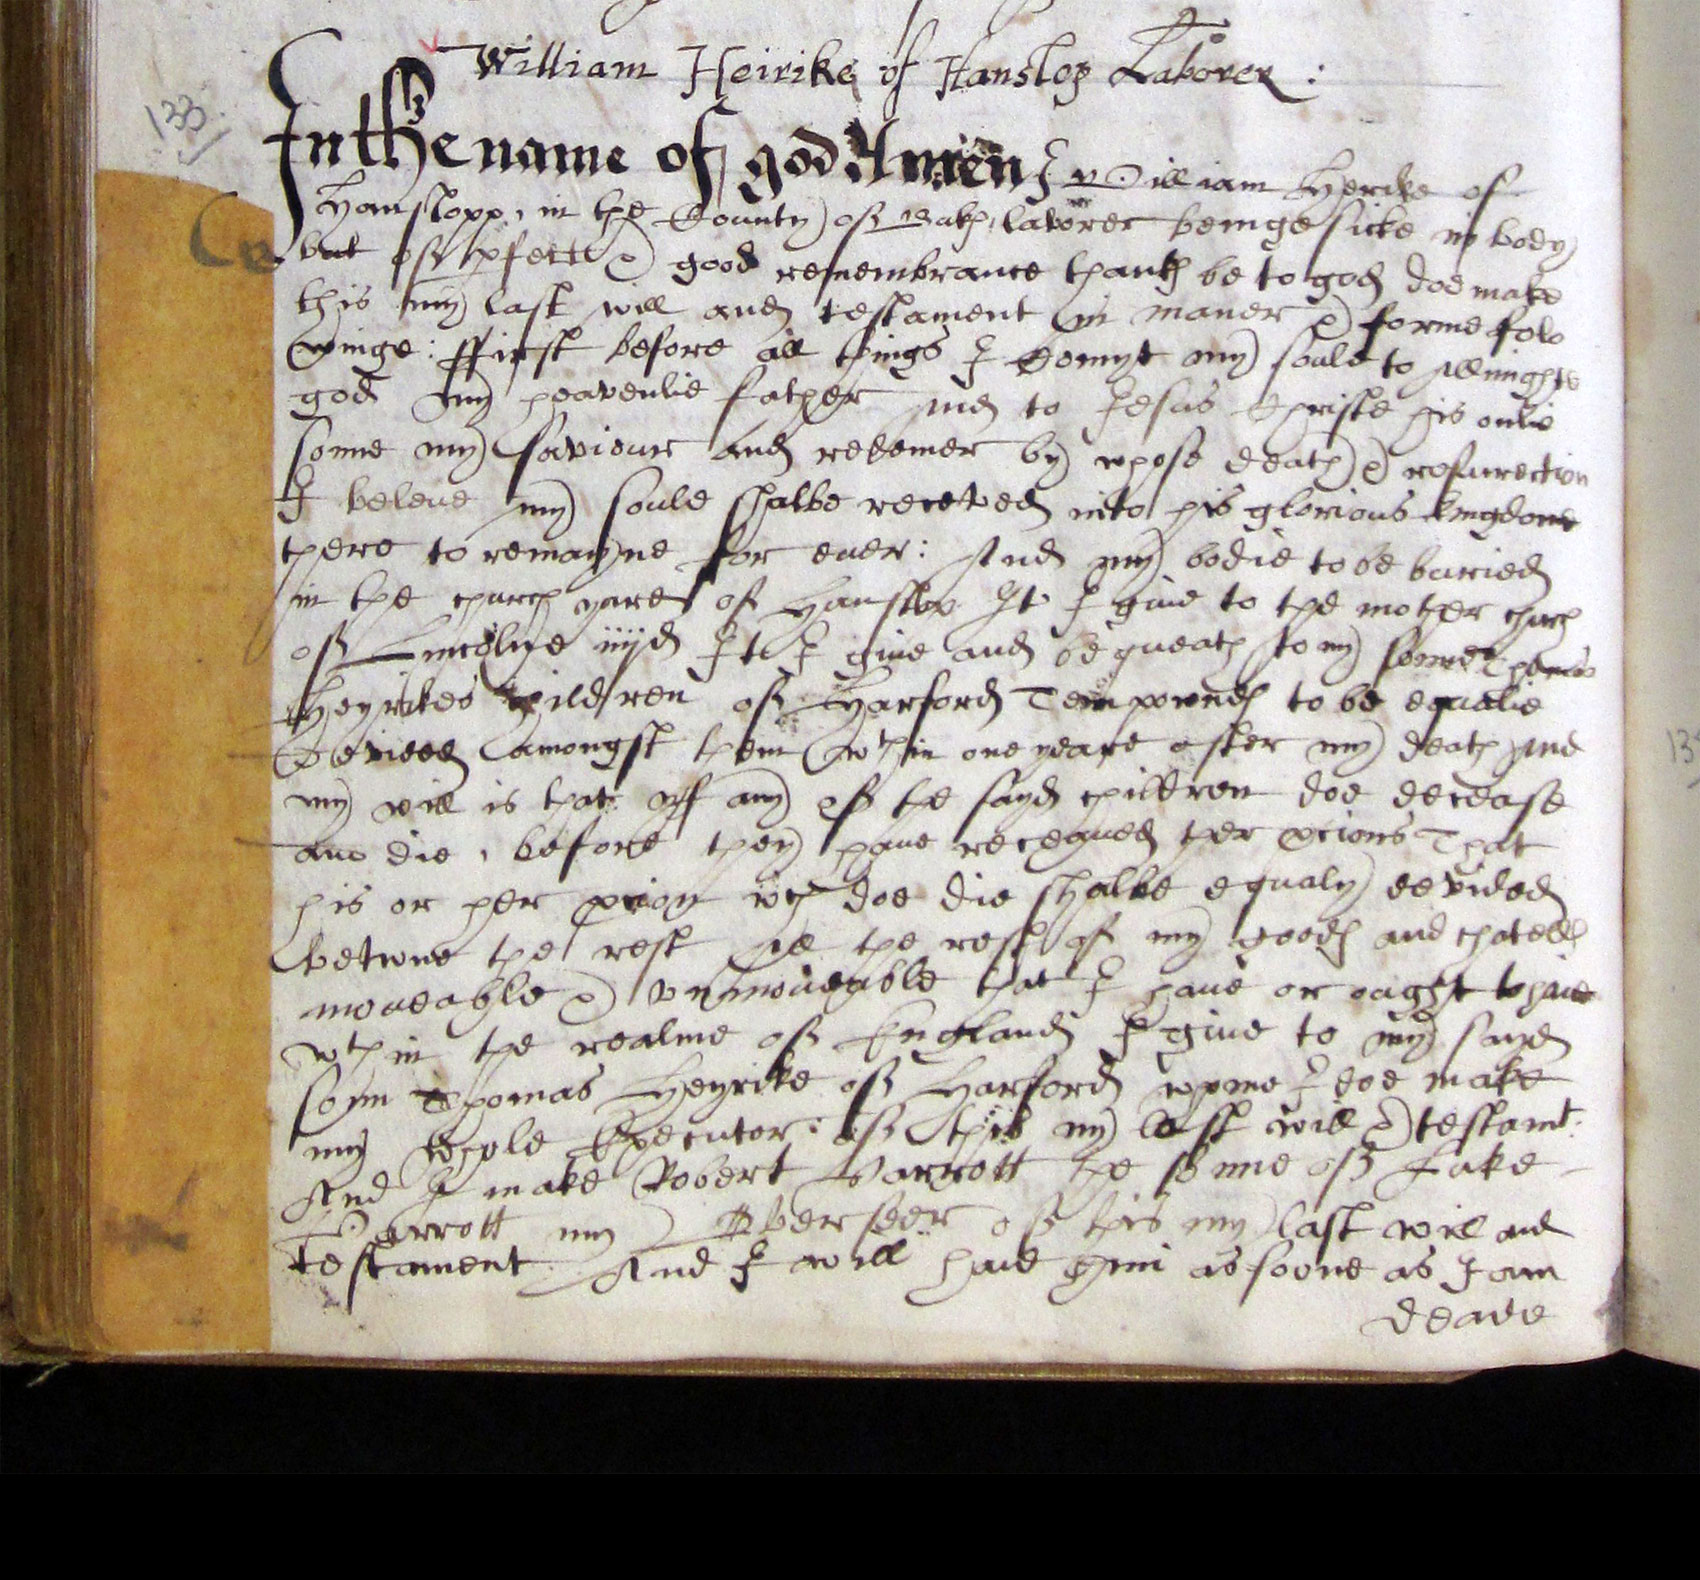 William Heirike of Hanslop Laborer :
133
In the name of god Amen I William Heyrike of
Hanslopp, in the County of Buck, laborer beinge sicke in body
but of pfect & good remembrance thank be to god doe make
this my last will and testament in maner & forme folo
winge : ffirst before all things I Comyt my soule to Allmighte
god my heavenlie father And to Jesus Christe his onlie
sonne my saviour and redemer by whose death & resurection
I beleve my soule shalbe receved into his glorious kingdome
there to remayne for ever : And my bodie to be buried
in the church yard of Hanslop It I give to the mother church
of Lincolne iiijd It I give and bequeath to my sonne Thomas
Heyrikes children of Harford Tenn pownds to be equalie
devided amongst them wthin one yeare after my death And
my will is that yff any of the sayd children doe decease
and die, before they have receaved ther pcions That
his or her pcion wch doe die shalbe equaly devided
betwne the rest All the rest of my goods and chatells
moveable & unmoveable that I have or ought to have
wthin the realme of England I give to my sayd
sonn Thomas Heyrike of Harford whome I doe make
my whole Executor : of this my last will & testamt :
And I make Robert Warrott the sonne of Luke
Warrott my Overseer of this my last will and
testament And I will have him as soone as I am
deade